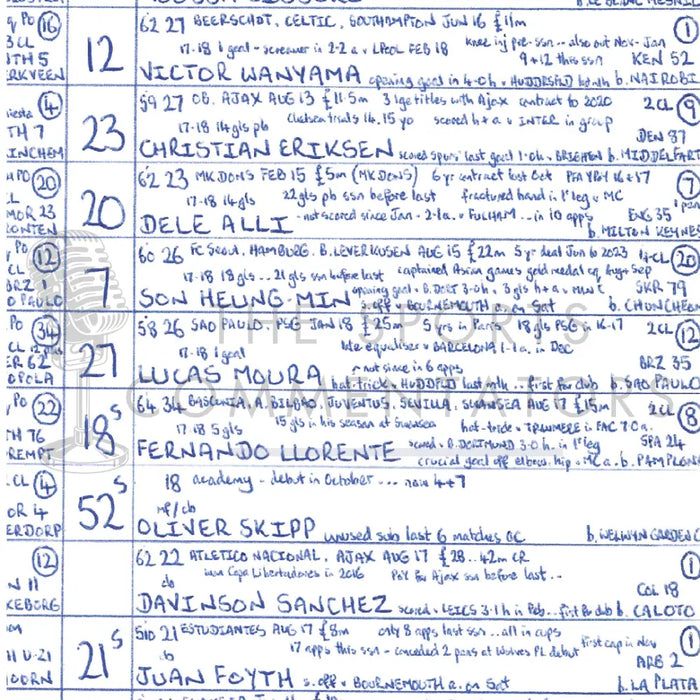 62 27 BEERSCHOT, CELTIC, SOUTHAMPTON JUN 16 £11m
17-18 1 goal - screamer in 2-2 a v LPOOL FEB 18
knee inj pre-ssn -- also out Nov - Jan
9+12 this ssn
KEN 52
1
12
VICTOR WANYAMA
opening goal in 4-0 h v HUDDRSFLD last mth
b. NAIROBI
59 27 OB, AJAX AUG 13 £11.5m 3 lge titles with Ajax contract to 2020
2 CL 9
17-18 14 gls pb
Chelsea trials 14, 15 yo scored h+a v INTER in group
DEN 87
23
CHRISTIAN ERIKSEN
scored Spurs' last goal 1-0 h v BRIGHTON
b. MIDDELFART
62 23 MK DONS FEB 15 £5m (MK DONS) 6 yr contract last Oct PFA YPY 16+17
7
17-18 14 gls
22 gls pb ssn before last fractured hand in 1st leg v MC
ENG 35
20
DELE ALLI
- not scored since Jan - 2-1 a v FULHAM ... in 10 apps
b. MILTON KEYNES
60 26 FC Seoul, HAMBURG, B. LEVERKUSEN AUG 15 £22m 5 yr deal Jun to 2023
4 CL 20
17-18 18 gls .. 21 gls ssn before last captained Asian games gold medal eq Aug + Sep
SKR 79
7
SON HEUNG-MIN
opening goal v B. DORT 3-0 h
s. off v BOURNEMOUTH a on Sat
b. CHUNCHEON
58 26 SAO PAULO, PSG JAN 18 £25m 5 yrs in Paris 18 gls PSG in 16-17
2 CL 12
17-18 1 goal
late equaliser v BARCELONA 1-1 a in Dec
BRZ 35
27
LUCAS MOURA
not since in 6 apps
hat-trick v HUDDFLD last mth ... first for club
b. SAO PAULO
64 34 BASCONIA, A. BILBAO, JUVENTUS, SEVILLA, SWANSEA AUG 17 £15m
2 CL 8
17-18 5 gls
15 gls in his season at Swansea hat-trick v TRANMERE in FAC 7-0 a
SPA 24
18 S
FERNANDO LLORENTE
scored v B. DORTMUND 3-0 h in 1st leg
crucial goal off elbow, hip v MC a
b. PAMPLONA
18 academy - debut in October ... now 4+7
52 S
mf/cb
OLIVER SKIPP
unused sub last 6 matches
b. WELWYN GARDEN C
62 22 ATLETICO NACIONAL, AJAX AUG 17 £28 .. 42m CR
1
won Copa Libertadores in 2016 PoY for Ajax ssn before last ..
COL 18
cb
DAVINSON SANCHEZ
scored v LEICS 3-1 h in Feb .. first for club
b. CALOTO
510 21 ESTUDIANTES AUG 17 £8m only 8 apps last ssn ... all in cups
first cap in Nov
1
17 apps this ssn - conceded 2 pens at Wolves PL debut
ARG 2
21 S
JUAN FOYTH
s. off v BOURNEMOUTH a on Sat
b. LA PLATA
THE SPORTS
COMMENTATORS